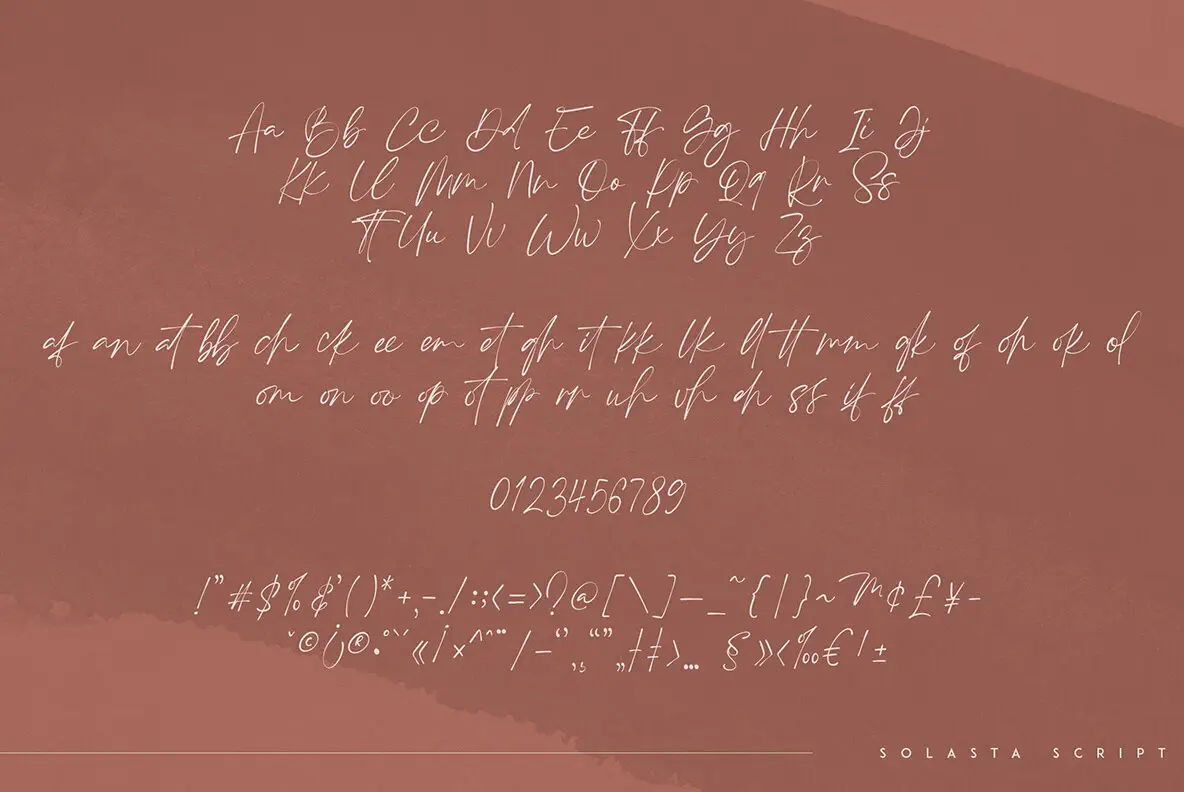 Aa Bb Cc Dd Ee Ff Gg Hh Ii Jj
Kk Ll Mm Nn Oo Pp Qq Rr Ss
Tt Uu Vv Ww Xx Yy Zz
af an at bb ch ck ee em et gh it kk lk ll tt mm gk of oh ok ol
om on oo op ot pp rr uh vh eh ss if ff
0123456789
!"#$%&'()*+,-./:;<=>?@[\]—_~{|}~™¢£¥-
ˇ©¡®•°`´«¡×^^¨/–‘’‚¸“”„†‡>… §»<‰€/±
SOLASTA SCRIPT